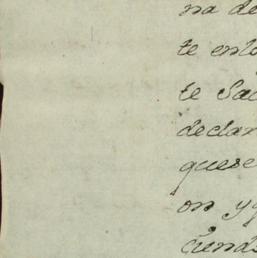 na de
te ento
te Sac
declar
quese
on y q
cunda